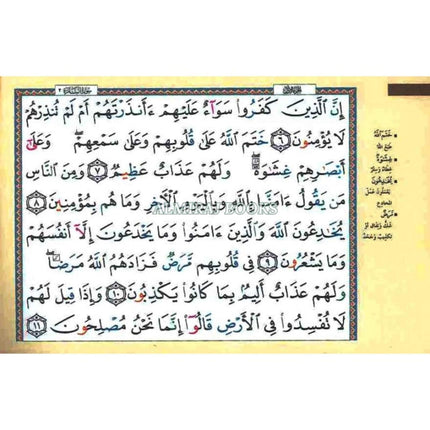 إِنَّ ٱلَّذِينَ كَفَرُوا۟ سَوَآءٌ عَلَيْهِمْ ءَأَنذَرْتَهُمْ أَمْ لَمْ تُنذِرْهُمْ
لَا يُؤْمِنُونَ ٦ خَتَمَ ٱللَّهُ عَلَىٰ قُلُوبِهِمْ وَعَلَىٰ سَمْعِهِمْ ۖ وَعَلَىٰٓ
أَبْصَٰرِهِمْ غِشَٰوَةٌ ۖ وَلَهُمْ عَذَابٌ عَظِيمٌ ٧ وَمِنَ ٱلنَّاسِ
مَن يَقُولُ ءَامَنَّا بِٱللَّهِ وَبِٱلْيَوْمِ ٱلْءَاخِرِ وَمَا هُم بِمُؤْمِنِينَ ٨
يُخَٰدِعُونَ ٱللَّهَ وَٱلَّذِينَ ءَامَنُوا۟ وَمَا يَخْدَعُونَ إِلَّآ أَنفُسَهُمْ
وَمَا يَشْعُرُونَ ٩ فِى قُلُوبِهِم مَّرَضٌ فَزَادَهُمُ ٱللَّهُ مَرَضًا ۖ
وَلَهُمْ عَذَابٌ أَلِيمٌۢ بِمَا كَانُوا۟ يَكْذِبُونَ ١٠ وَإِذَا قِيلَ لَهُمْ
لَا تُفْسِدُوا۟ فِى ٱلْأَرْضِ قَالُوٓا۟ إِنَّمَا نَحْنُ مُصْلِحُونَ ١١
خَتَمَ اللهُ
غِشَاوَةٌ
يُخَادِعُونَ
مَرَضٌ